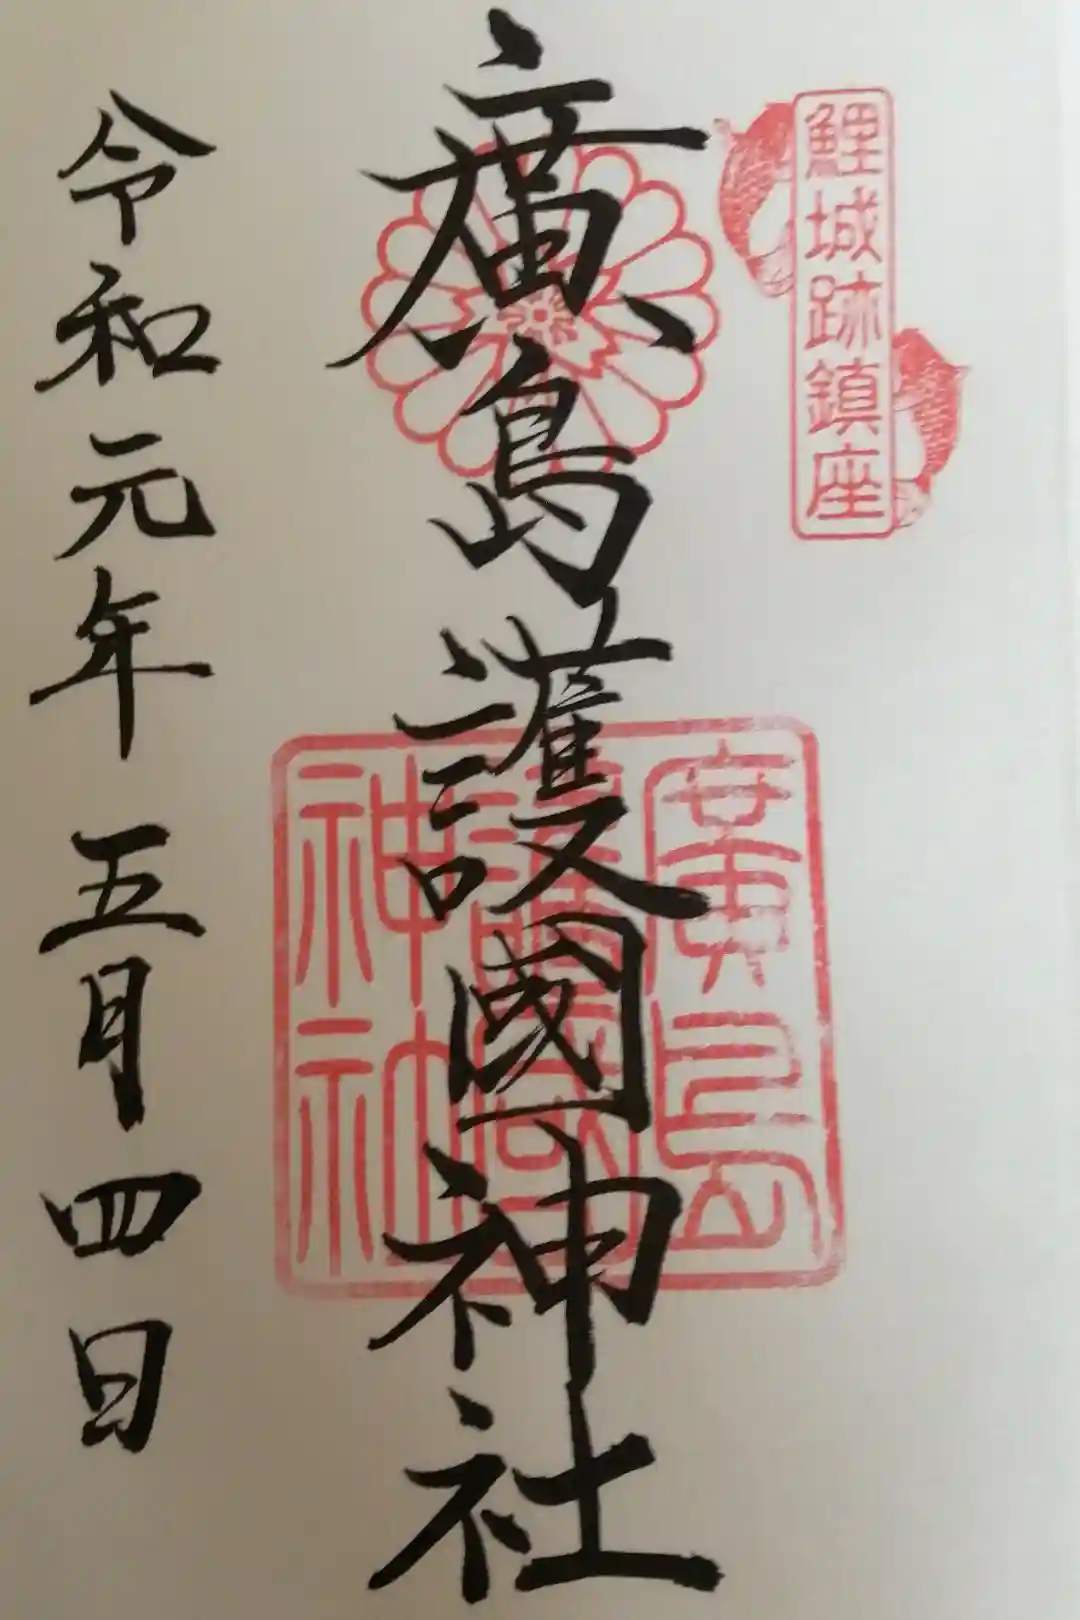 鯉城跡鎮座
廣島護國神社
廣島
護國
神社
令和元年 五月四日